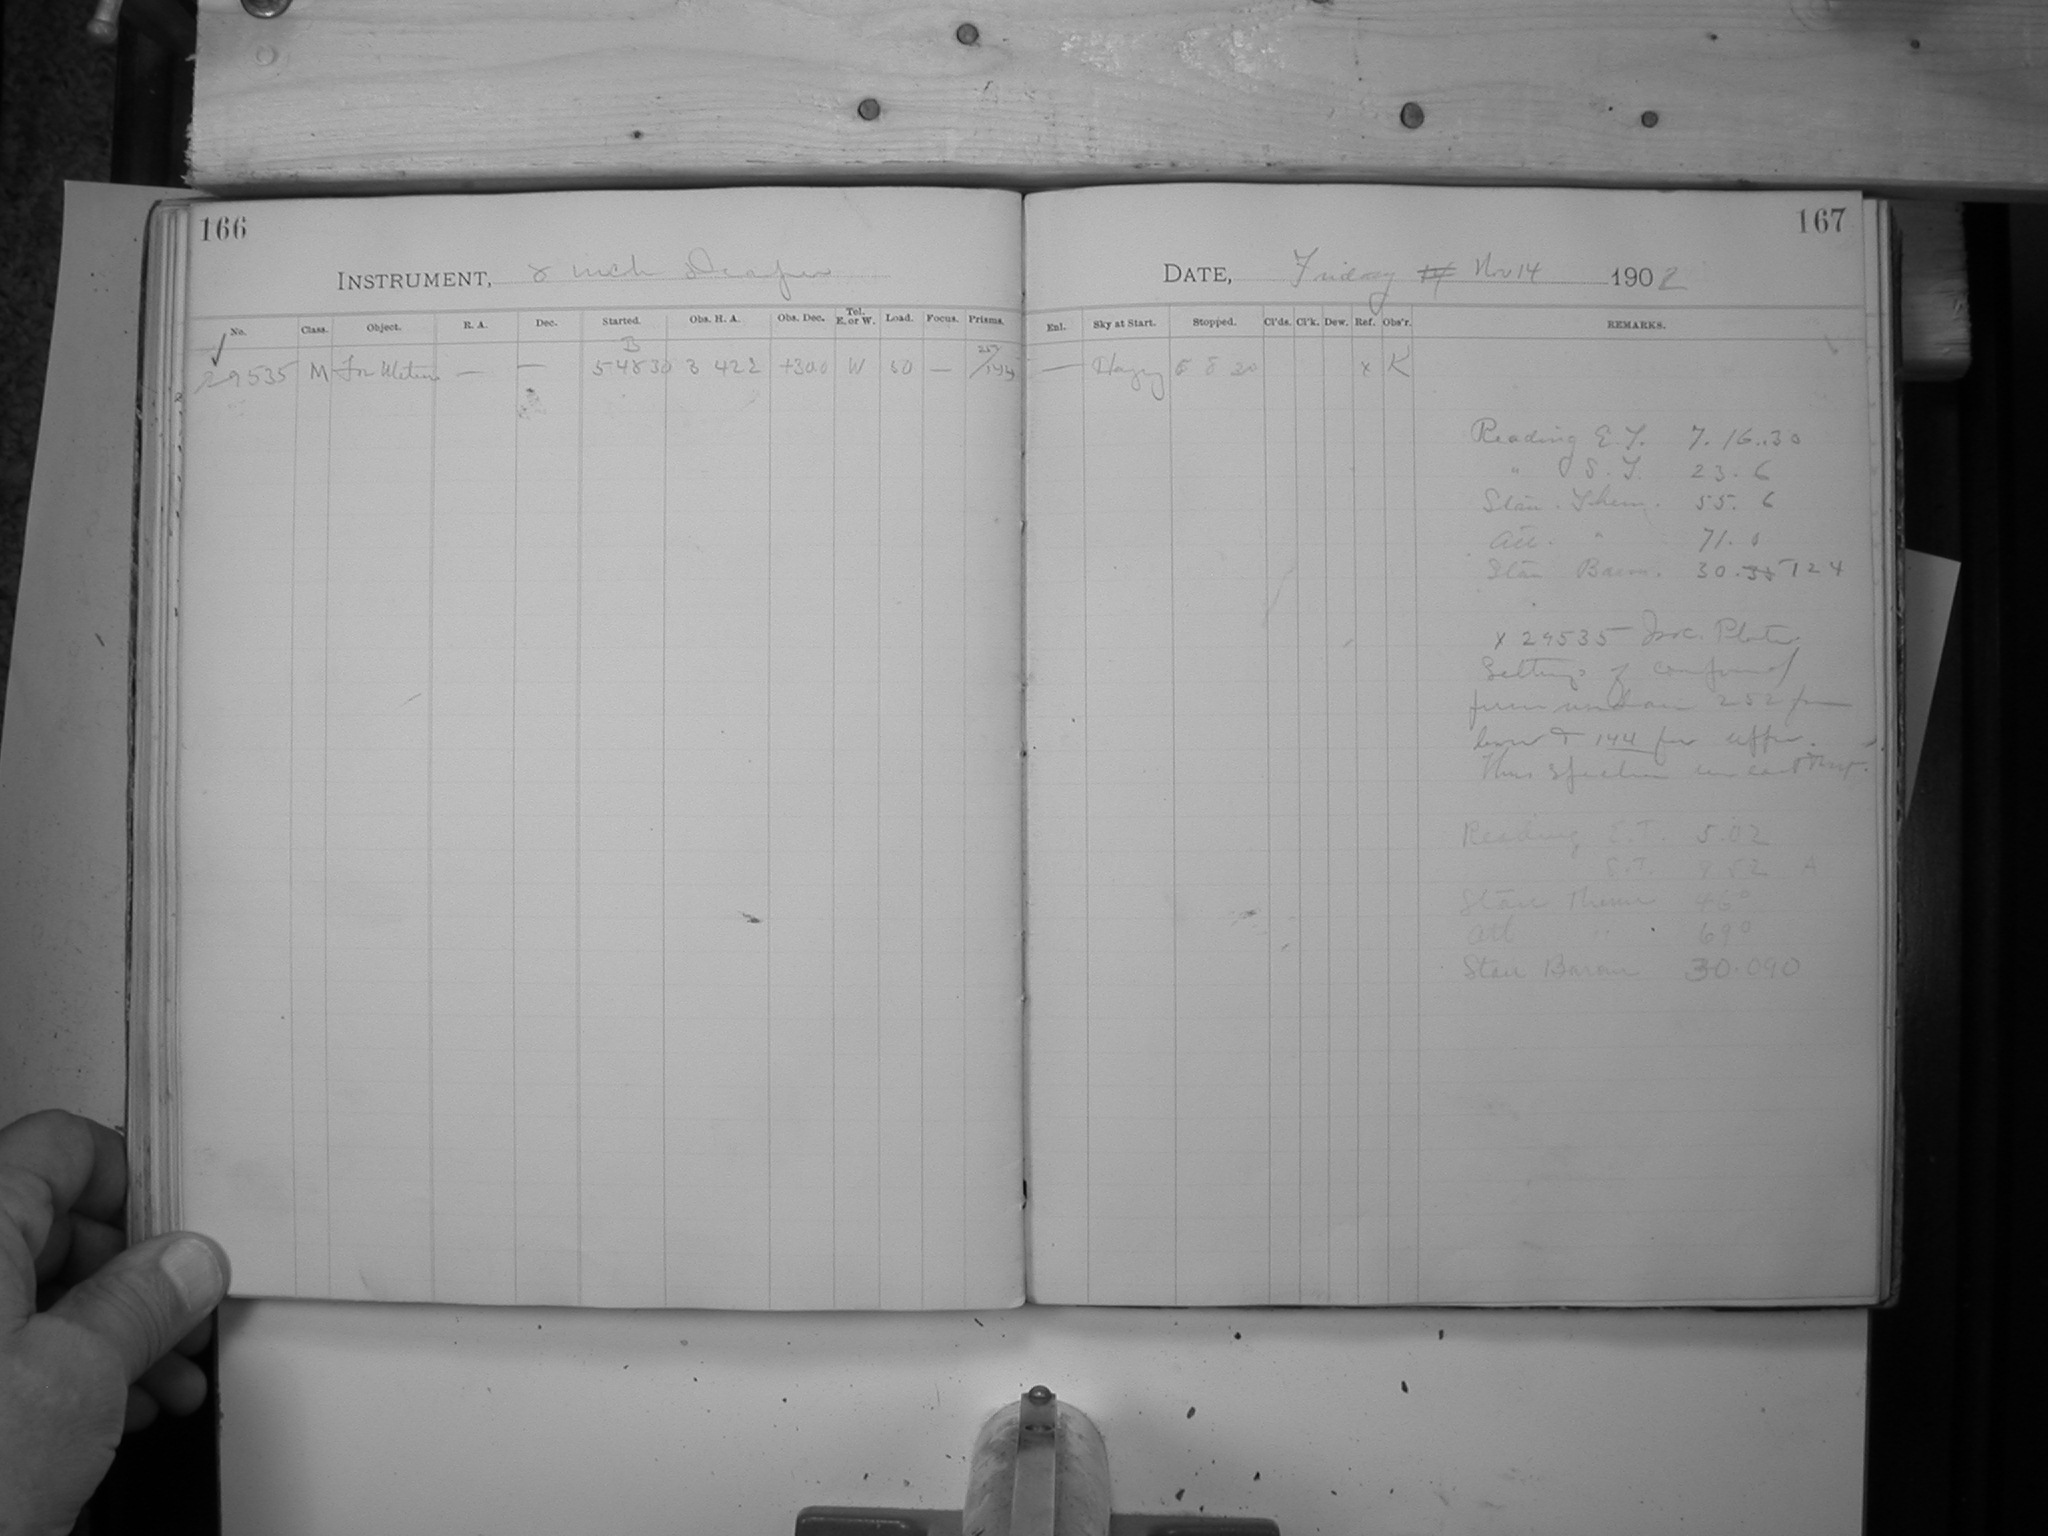 166
INSTRUMENT, 8 inch Draper
No. Class. Object. R. A. Dec. Started. Obs. H. A. Obs. Dec. Tel. E. or W. Load. Focus. Prisms.
29535 M For Meteors — — 54830 3 422 +30.0 W 50 —
167
DATE, Friday Nov 14 1902
Enl. Sky at Start. Stopped. Cl'ds. Cl'k. Dew. Ref. Obs'r. REMARKS.
— Hazy 5 8 30 x K
Reading E. T. 7. 16. 30
" S. T. 23. 6
Stan. Therm. 55. 6
Att. " 71. 0
Stan Barom. 30. 124
x 29535 Plates
Settings of compound
252 for
lower & 144 for upper.
This
Reading E. T. 5.02
S.T. 8 52 A
Stan Therm 46°
Att " 69°
Stan Barom 30.090